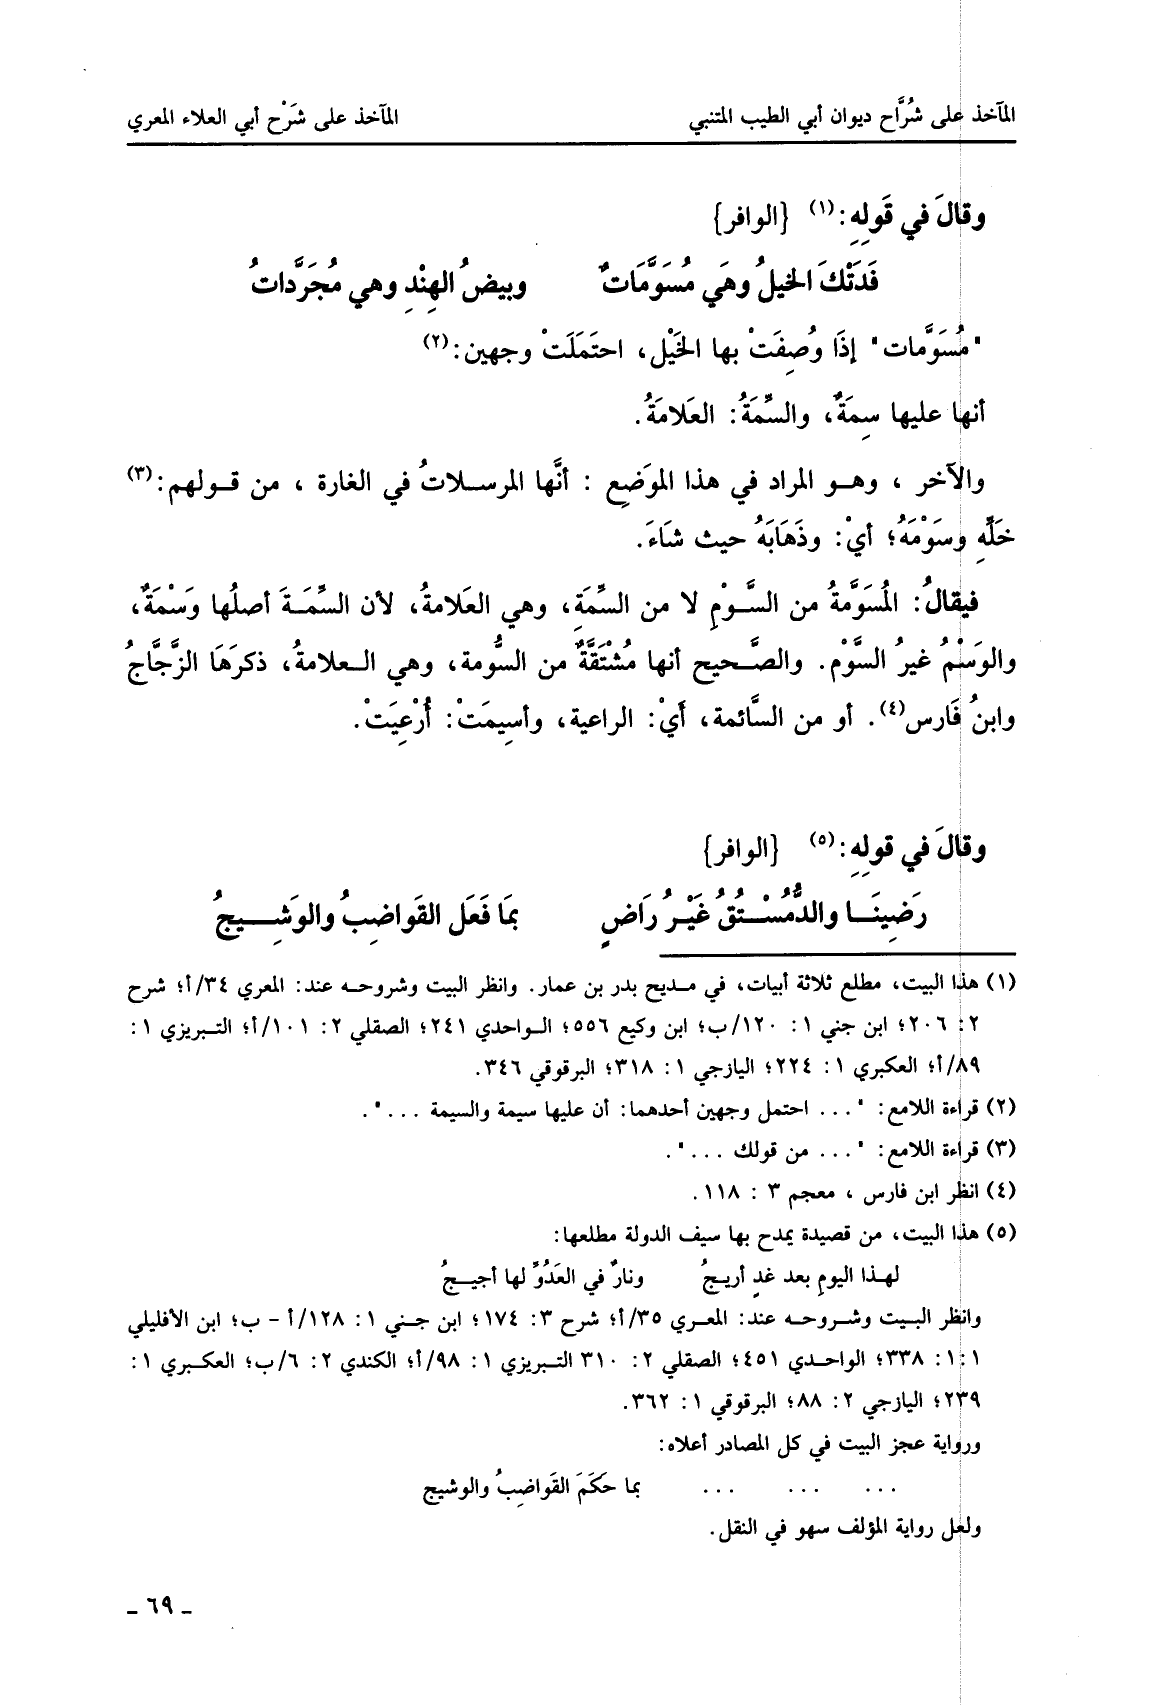 المآخذ على شُرَّاح ديوان أبي الطيب المتنبي المآخذ على شَرْح أبي العلاء المعري
وقالَ في قَولِهِ:(١) {الوافر}
فَدَتْكَ الخيلُ وهَي مُسَوَّمَاتٌ وبيضُ الهِنْدِ وهي مُجَرَّداتُ
"مُسَوَّمات" إذَا وُصِفَتْ بها الخَيْل، احتَمَلَتْ وجهين:(٢)
أنها عليها سِمَةٌ، والسِّمَةُ: العَلامَةُ.
والآخر ، وهو المراد في هذا الموَضِع : أنَّها المرسلاتُ في الغارة ، من قولهم:(٣)
خَلِّهِ وسَوْمَهُ؛ أيْ: وذَهَابَهُ حيث شَاءَ.
فيقالُ: المُسَوَّمةُ من السَّوْمِ لا من السِّمَةِ، وهي العَلامةُ، لأن السِّمَةَ أصلُها وَسْمَةٌ،
والوَسْمُ غيرُ السَّوْم. والصَّحيح أنها مُشْتَقَّةٌ من السُّومة، وهي العلامةُ، ذكرَهَا الزَّجَّاجُ
وابنُ فَارس(٤). أو من السَّائمة، أَيْ: الراعية، وأسِيمَتْ: أُرْعِيَتْ.
وقالَ في قولِهِ:(٥) {الوافر}
رَضِينَا والدُّمُسْتُقُ غَيْرُ رَاضٍ بمَا فَعَل القَواضِبُ والوَشِيجُ
(١) هذا البيت، مطلع ثلاثة أبيات، في مديح بدر بن عمار. وانظر البيت وشروحه عند: المعري ٣٤/أ؛ شرح
٢: ٢٠٦؛ ابن جني ١: ١٢٠/ب؛ ابن وكيع ٥٥٦؛ الواحدي ٢٤١؛ الصقلي ٢: ١٠١/أ؛ التبريزي ١:
٨٩/أ؛ العكبري ١: ٢٢٤؛ اليازجي ١: ٣١٨؛ البرقوقي ٣٤٦.
(٢) قراءة اللامع: "... احتمل وجهين أحدهما: أن عليها سيمة والسيمة ...".
(٣) قراءة اللامع: "... من قولك ...".
(٤) انظر ابن فارس ، معجم ٣ : ١١٨.
(٥) هذا البيت، من قصيدة يمدح بها سيف الدولة مطلعها:
لهذا اليومِ بعد غدٍ أريجُ ونارٌ في العَدُوِّ لها أجيجُ
وانظر البيت وشروحه عند: المعري ٣٥/أ؛ شرح ٣: ١٧٤؛ ابن جني ١: ١٢٨/أ - ب؛ ابن الأفليلي
١:١: ٣٣٨؛ الواحدي ٤٥١؛ الصقلي ٢: ٣١٠ التبريزي ١: ٩٨/أ؛ الكندي ٢: ٦/ب؛ العكبري ١:
٢٣٩؛ اليازجي ٢: ٨٨؛ البرقوقي ١: ٣٦٢.
ورواية عجز البيت في كل المصادر أعلاه:
... ... ... بما حكَمَ القَواضِبُ والوشيج
ولعل رواية المؤلف سهو في النقل.
ـ ٦٩ ـ